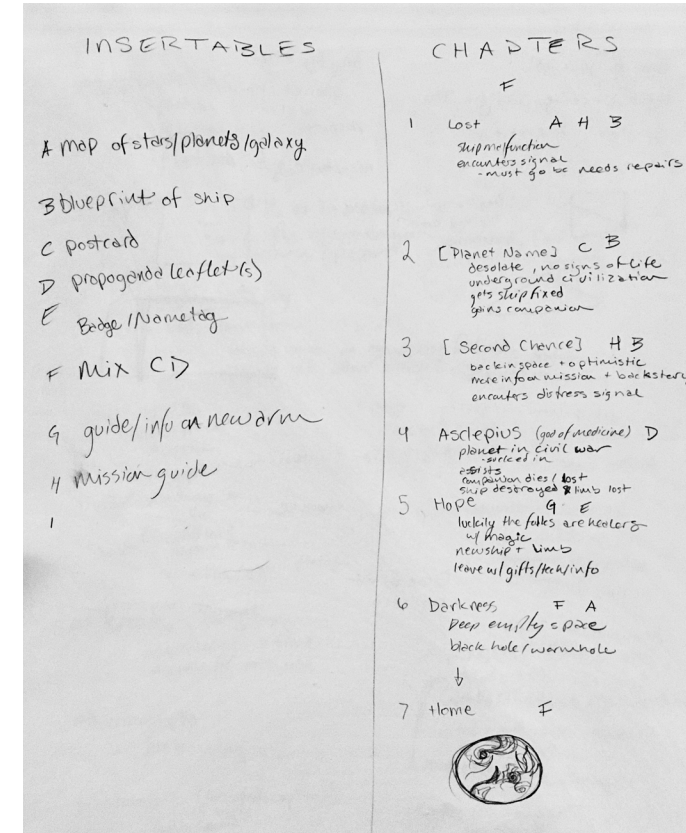 INSERTABLES
A map of stars/planets/galaxy
B blueprint of ship
C postcard
D propoganda leaflet(s)
E Badge/Nametag
F Mix CD
G guide/info on new arm
H mission guide
I
CHAPTERS
F
1 Lost A H B
ship malfunction
encounters signal
- must go bc needs repairs
2 [Planet Name] C B
desolate, no signs of life
underground civilization
gets ship fixed
gains companion
3 [Second Chance] H B
back in space + optimistic
more info on mission + backstory
encounters distress signal
4 Asclepius (god of medicine) D
planet in civil war
- sucked in
assists
companion dies/lost
ship destroyed & limb lost
5 Hope G E
luckily the folks are healers
w/ magic
new ship + limb
leave w/ gifts/tech/info
6 Darkness F A
Deep empty space
black hole/wormhole
↓
7 Home F